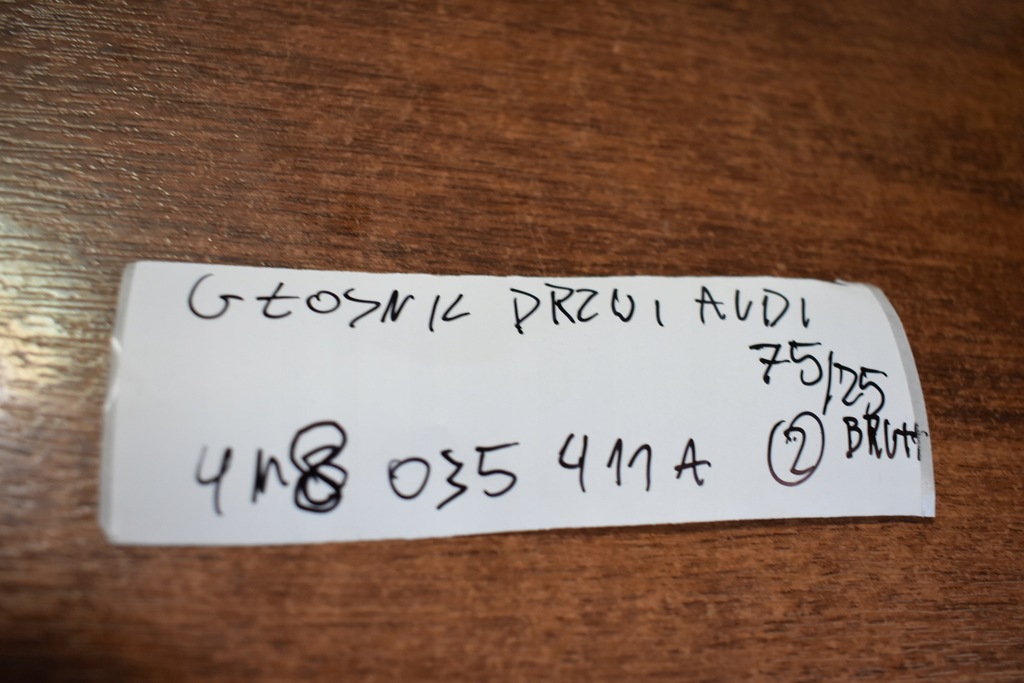 GŁOSNIK DRZWI AUDI
75/25
4M8 035 411 A ② BRUTT